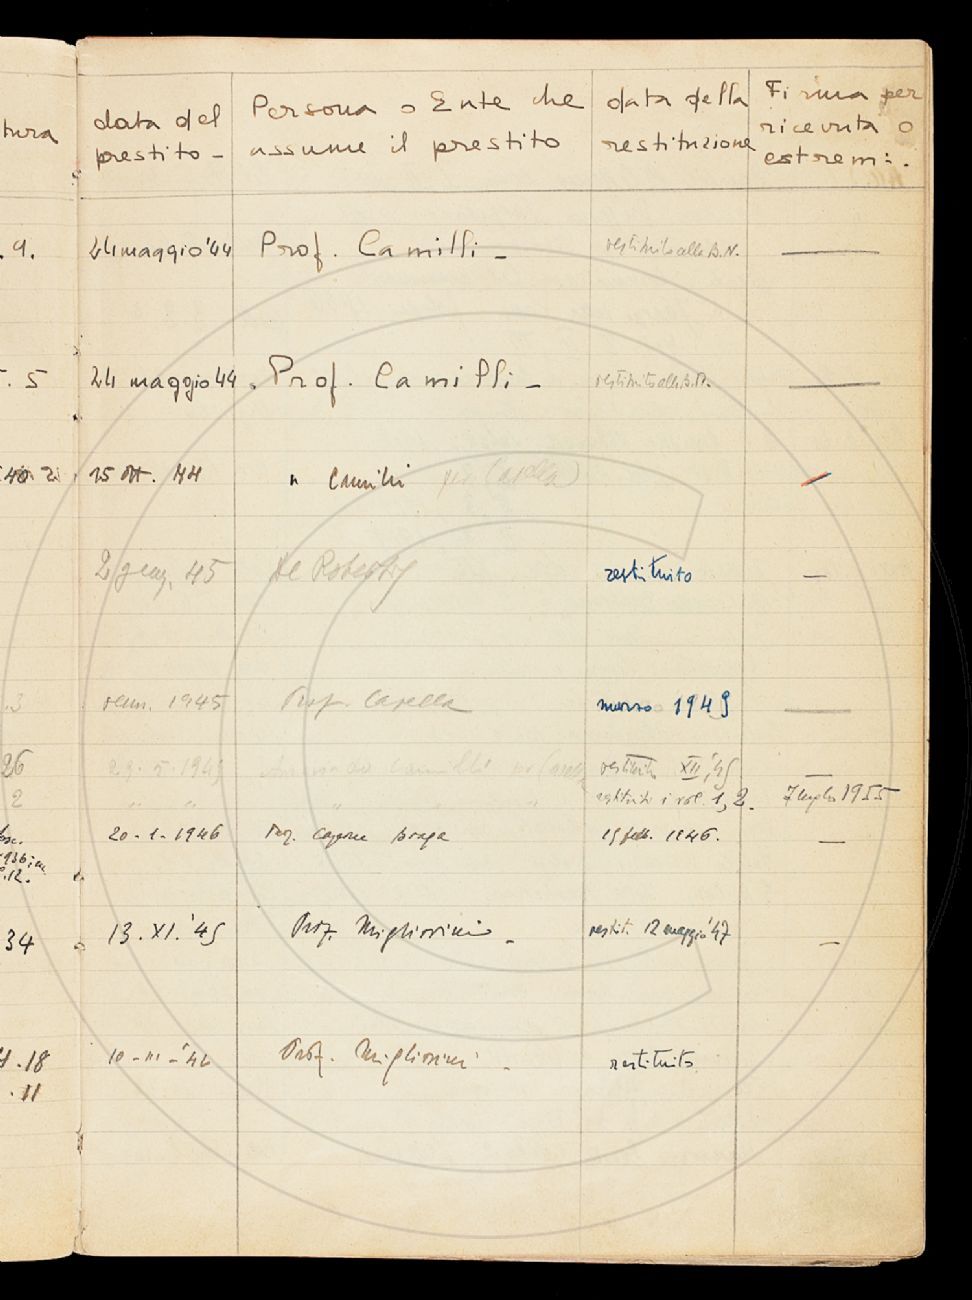 tura
data del
prestito -
Persona o Ente che
assume il prestito
data della
restituzione
Firma per
ricevuta o
estremi.
. 9. 24 maggio '44 Prof. Camilli - restituito alla B.N. —
. 5 24 maggio 44. Prof. Camilli - restituito alla B.N. —
15 ott. 44 " Camilli per Casella
2 genn. 45 De Robertis restituito —
.3 1945 Prof. Casella marzo 1949 —
26 29.5.1945 Camilli restituito XII, '45 —
2 " " " " restituito i vol. 1, 2. 7 luglio 1955
20-1-1946 15 febb. 1946. —
936
.12.
34 13.XI.'45 Prof. Migliorini - restit. 12 maggio '47 —
.18 10-III-'46 Prof. Migliorini - restituito
.11